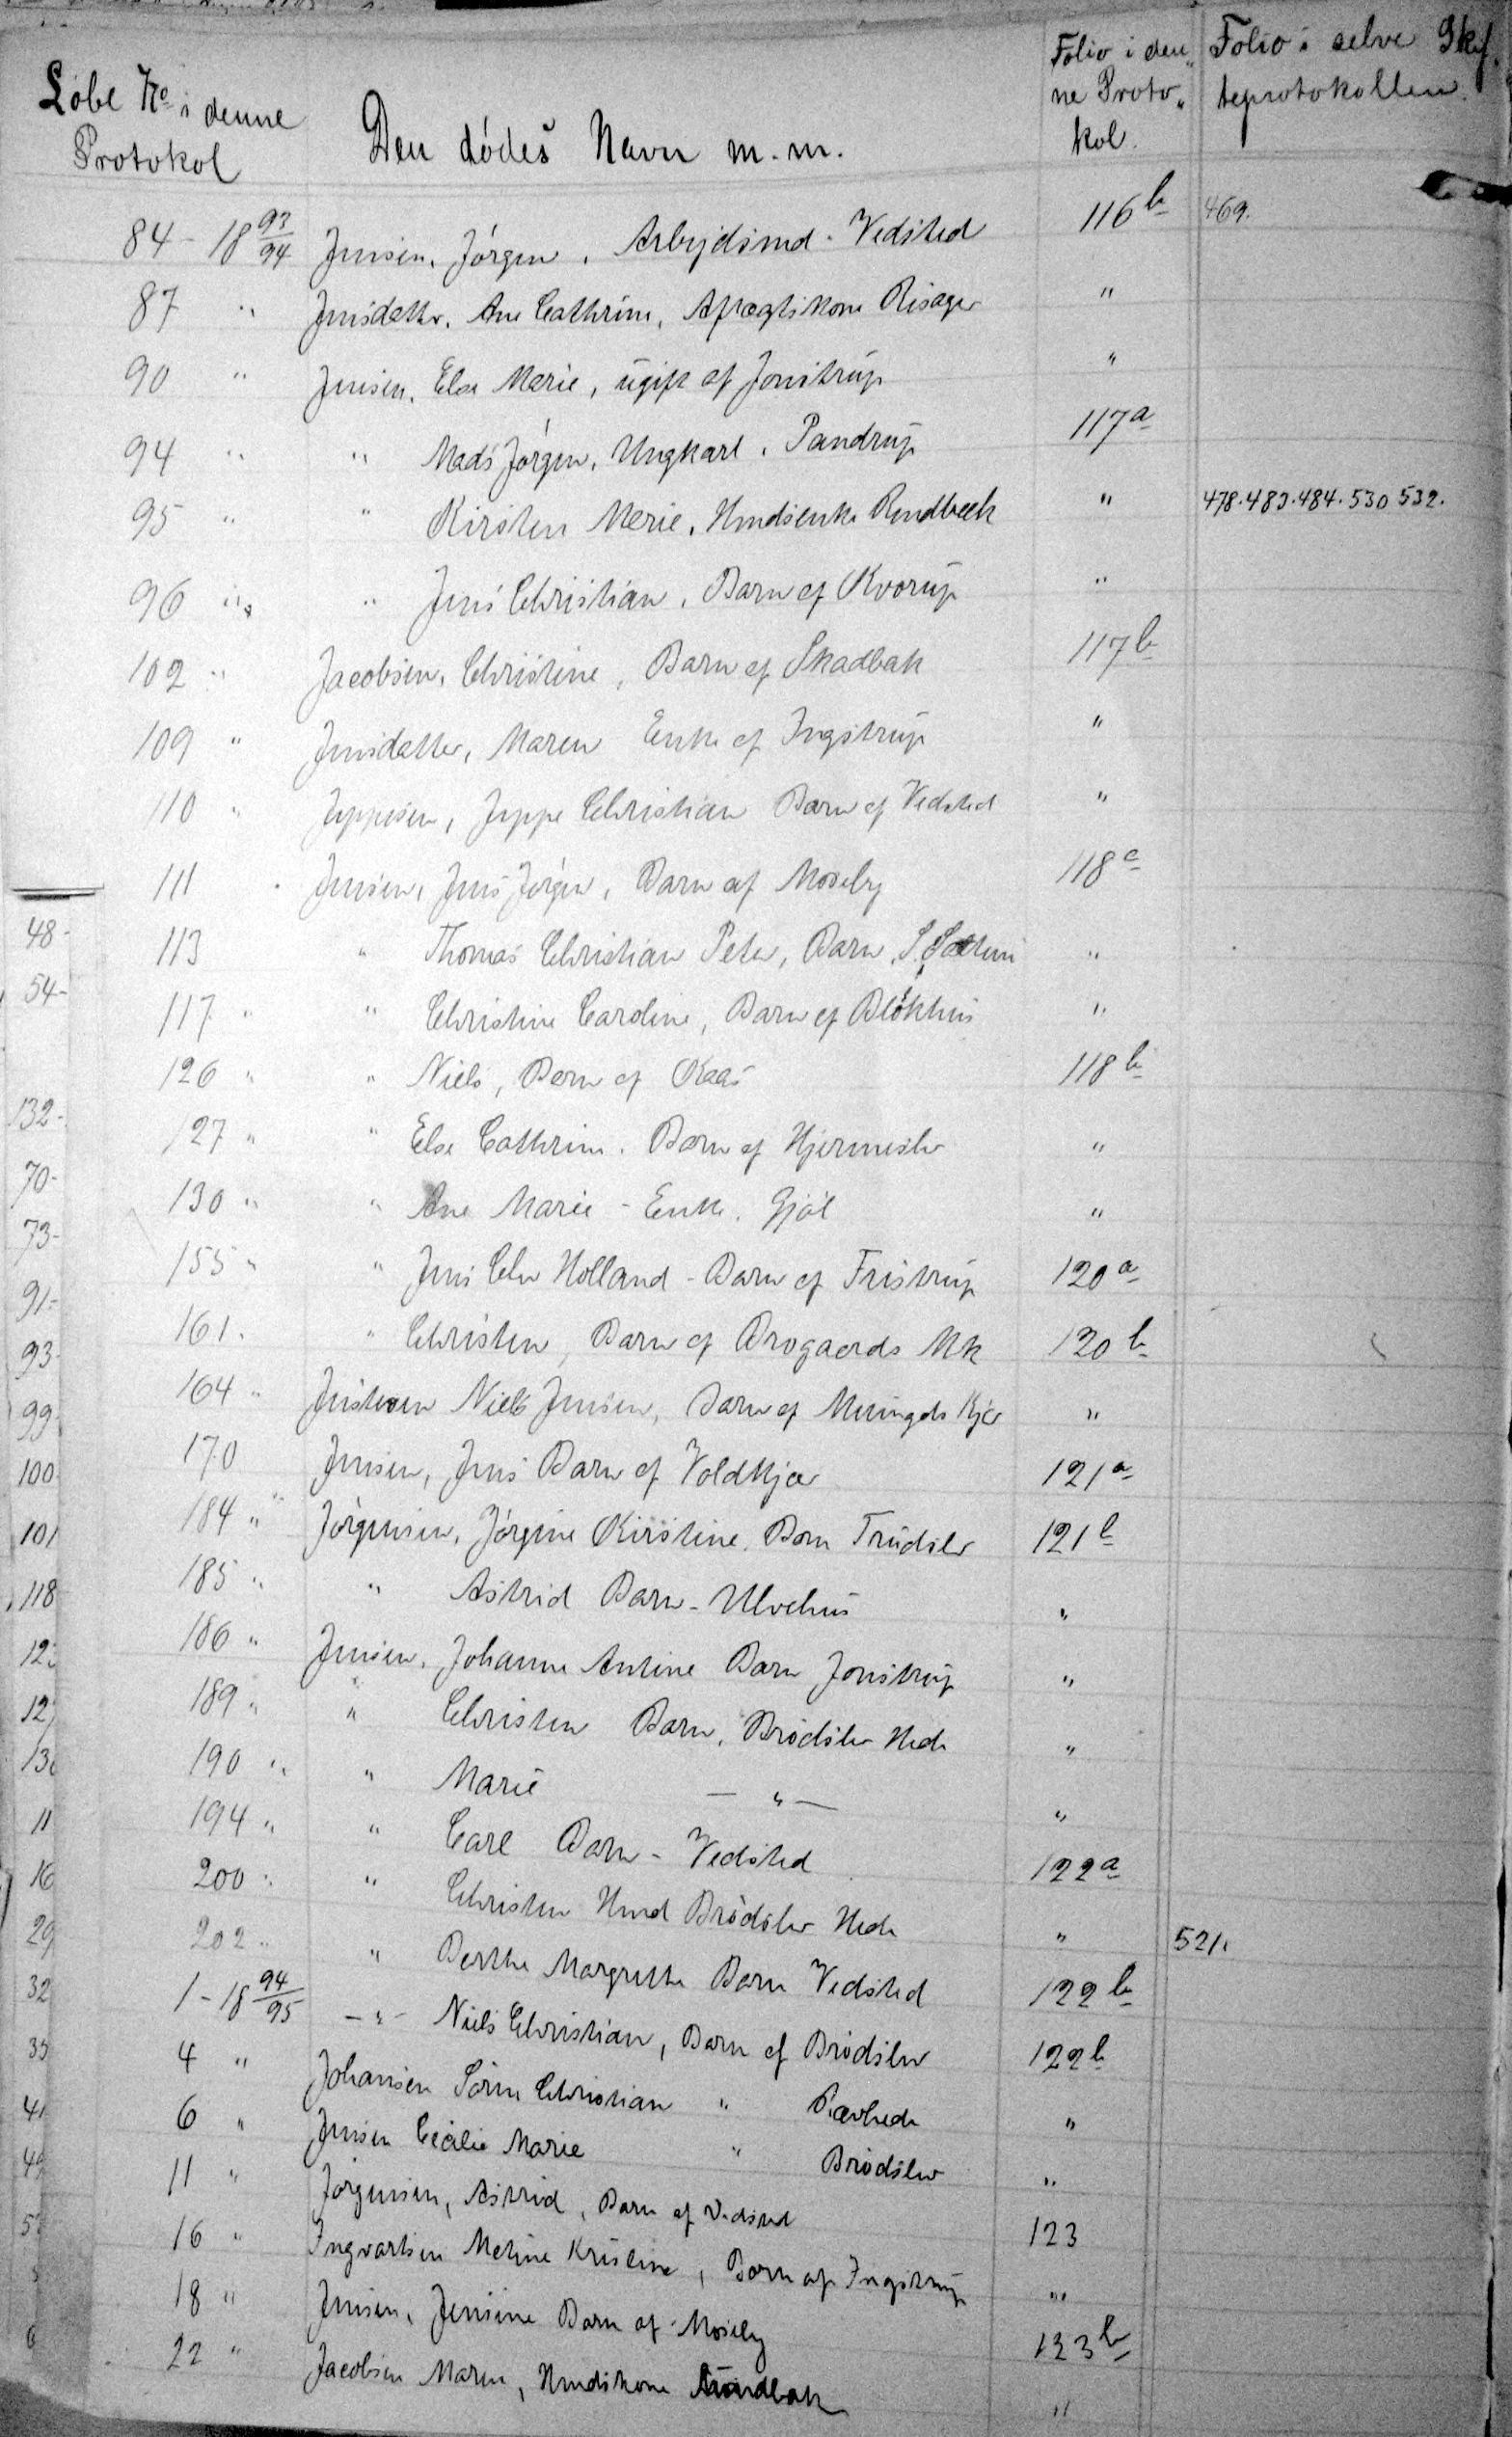 Løbe No i denne Protokol | Den dødes Navn m.m. | Folio i den„ne Proto„kol. | Folio i selve Skif„teprotokollen.
84 - 18 93/94 Jensen, Jørgen, Arbejdsmd - Vedsted 116 b 469.
87 " Jensdatter, Ane Cathrine, Aftægtskone Risager "
90 " Jensen, Else Marie, ugift af Jonstrup "
94 " " Mads Jørgen, Ungkarl, Pandrup 117 a
95 " " Kirsten Marie, Hmdsenke Rendbæk " 478. 483. 484. 530 532.
96 " " Jens Christian, Barn af Kvorup "
102 " Jacobsen, Christine, Barn af Skadbak 117 b
109 " Jensdatter, Maren Enke af Ingstrup "
110 " Jeppesen, Jeppe Christian Barn af Vedsted "
111 Jensen, Jens Jørgen, Barn af Moseby 118 a
113 " Thomas Christian Peter, Barn, S. "
117 " " Christine Caroline, Barn af Blokhus "
126 " " Niels, Barn af Kaas 118 b
127 " " Else Cathrine. Barn af Hjermeslv "
130 " " Ane Marie - Enke, Gjøl "
155 " " Jens Chr Holland - Barn af Fristrup 120 a
161. " Christen, Barn af Drogaards Mk 120 b
164 " Justesen Niels Jensen, Barn af Kjær "
170 Jensen, Jens Barn af Voldkjær 121 a
184 " Jørgensen, Jørgine Kirstine. Barn Trudslv 121 b
185 " " Astrid Barn - Ulvehus "
186 " Jensen, Johanne Antine Barn Jonstrup "
189 " " Christen Barn, Brødslv Hede "
190 " " Marie — " — "
194 " " Carl Barn - Vedsted 122 a
200 " " Christen Hmd Brødslv Hede " 521.
202 " " Berthe Margrethe Barn Vedsted 122 b
1 - 18 94/95 - " - Niels Christian, Barn af Brødslv 122 b
4 " Johansen Søren Christian " "
6 " Jensen Cecilie Marie " Brødslev "
11 " Jørgensen, Astrid, Barn af Vedsted 123
16 " Ingvartsen Metine Kristine, Barn af Ingstrup "
18 " Jensen, Jensine Barn af Moseby 123 b
22 " Jacobsen Maren, Hmdskone "
48 -
54 -
132 -
70 -
73 -
91 -
93
99
100
101
118